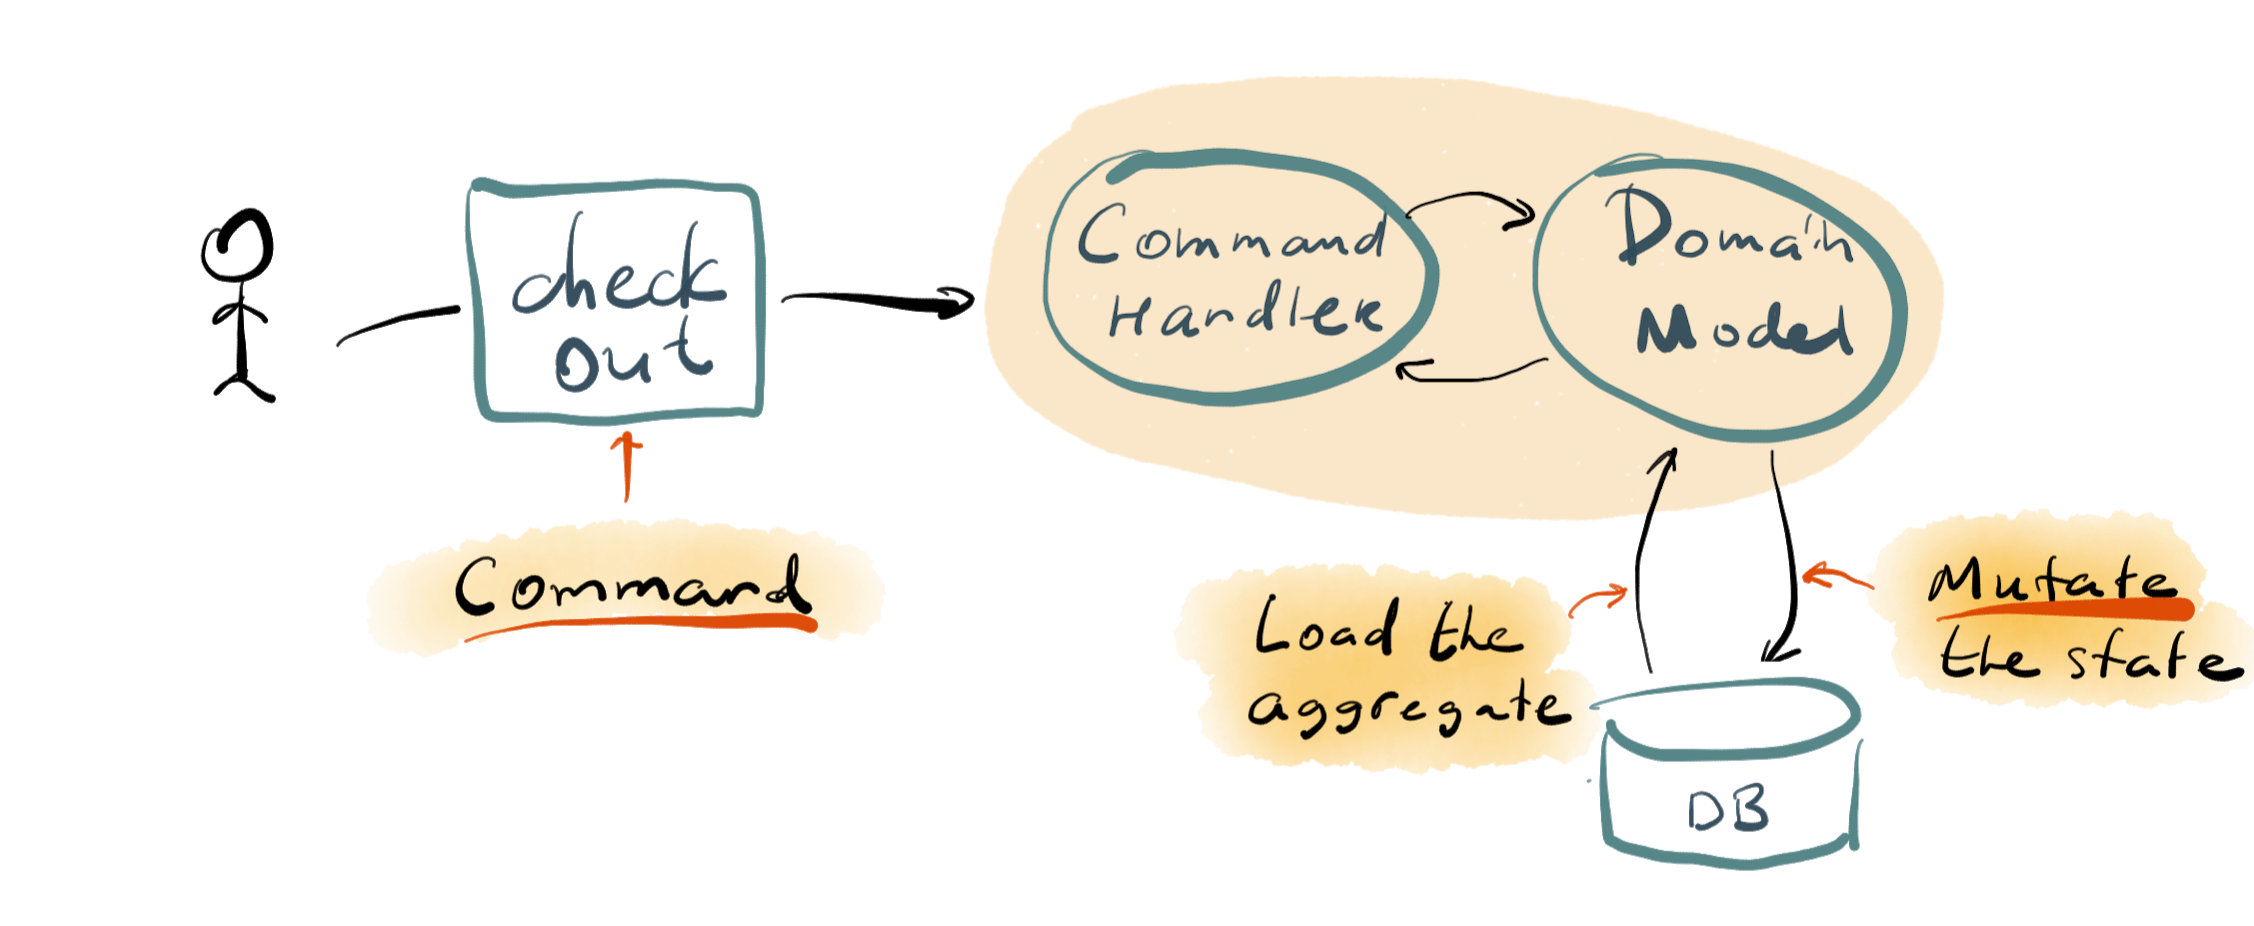 check
out
Command
Command
Handler
Domain
Model
Load the
aggregate
Mutate
the state
DB